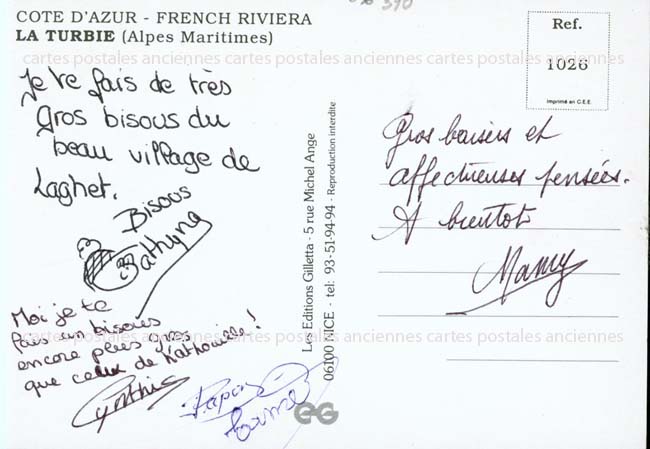 390
COTE D'AZUR - FRENCH RIVIERA
LA TURBIE (Alpes Maritimes)
Ref.
1026
Imprimé en C.E.E.
cartes postales anciennes cartes postales anciennes cartes postales anciennes cartes postales anciennes
Je te fais de très
Gros bisous du
beau village de
Laghet.
Bisous
Kathyna
Moi je te
fais un bisous
encore plus gros
que ceux de Kathouille!
Cynthia
Papou
Les Editions Gilletta - 5 rue Michel Ange
06100 NICE - tel: 93-51-94-94 - Reproduction interdite
EG
Gros baisers et
affectueuses pensées.
A bientot
Mamy
cartes postales anciennes cartes postales anciennes cartes postales anciennes cartes postales anciennes